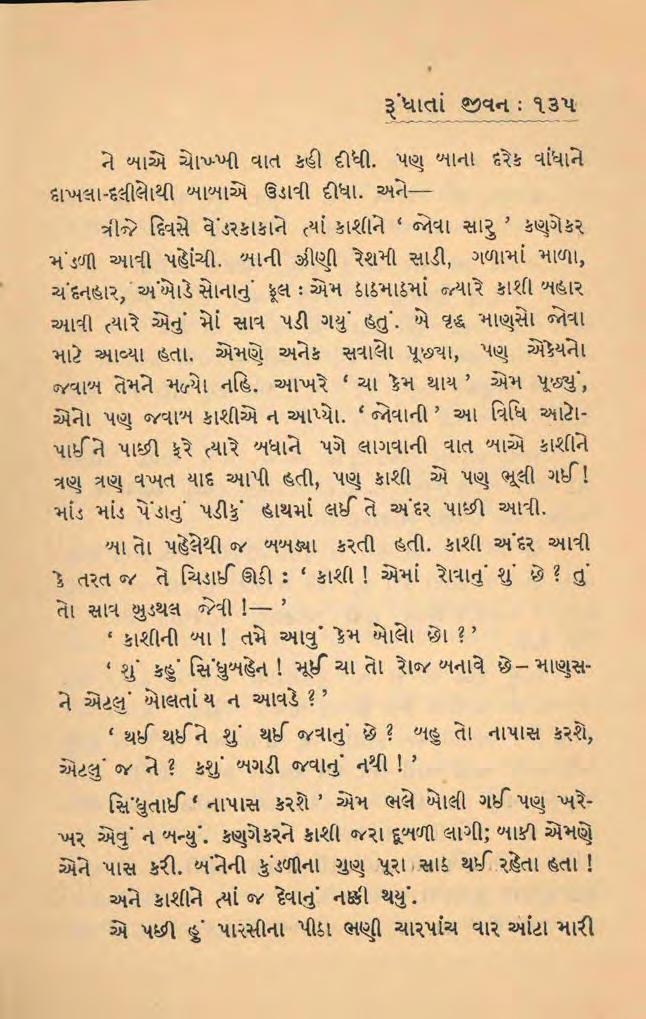 રૂંધાતાં જીવન : ૧૩૫
ને બાએ ચોખ્ખી વાત કહી દીધી. પણ બાના દરેક વાંધાને
દાખલા-દલીલોથી બાબાએ ઉડાવી દીધા. અને—
ત્રીજે દિવસે વેંડરકાકાને ત્યાં કાશીને ‘ જોવા સારુ ’ કણગેકર
મંડળી આવી પહોંચી. બાની ઝીણી રેશમી સાડી, ગળામાં માળા,
ચંદનહાર, અંબોડે સોનાનું ફૂલ : એમ ઠાઠમાઠમાં જ્યારે કાશી બહાર
આવી ત્યારે એનું મોં સાવ પડી ગયું હતું. બે વૃદ્ધ માણસો જોવા
માટે આવ્યા હતા. એમણે અનેક સવાલો પૂછ્યા, પણ એકેયનો
જવાબ તેમને મળ્યો નહિ. આખરે ‘ ચા કેમ થાય ’ એમ પૂછ્યું,
એનો પણ જવાબ કાશીએ ન આપ્યો. ‘ જોવાની ’ આ વિધિ આટો-
પાઈને પાછી ફરે ત્યારે બધાને પગે લાગવાની વાત બાએ કાશીને
ત્રણ ત્રણ વખત યાદ આપી હતી, પણ કાશી એ પણ ભૂલી ગઈ !
માંડ માંડ પેંડાનું પડીકું હાથમાં લઈ તે અંદર પાછી આવી.
બા તો પહેલેથી જ બબડ્યા કરતી હતી. કાશી અંદર આવી
કે તરત જ તે ચિડાઈ ઊઠી : ‘ કાશી ! એમાં રોવાનું શું છે ? તું
તો સાવ બુડથલ જેવી !— ’
‘ કાશીની બા ! તમે આવું કેમ બોલો છો ? ’
‘ શું કહું સિંધુબહેન ! મૂઈ ચા તો રોજ બનાવે છે – માણસ-
ને એટલું બોલતાંય ન આવડે ? ’
‘ થઈ થઈને શું થઈ જવાનું છે ? બહુ તો નાપાસ કરશે,
એટલું જ ને ? કશું બગડી જવાનું નથી ! ’
સિંધુતાઈ ‘ નાપાસ કરશે ’ એમ ભલે બોલી ગઈ પણ ખરે-
ખર એવું ન બન્યું. કણગેકરને કાશી જરા દૂબળી લાગી; બાકી એમણે
એને પાસ કરી. બંનેની કુંડળીના ગુણ પૂરા સાઠ થઈ રહેતા હતા !
અને કાશીને ત્યાં જ દેવાનું નક્કી થયું.
એ પછી હું પારસીના પીઠા ભણી ચારપાંચ વાર આંટા મારી